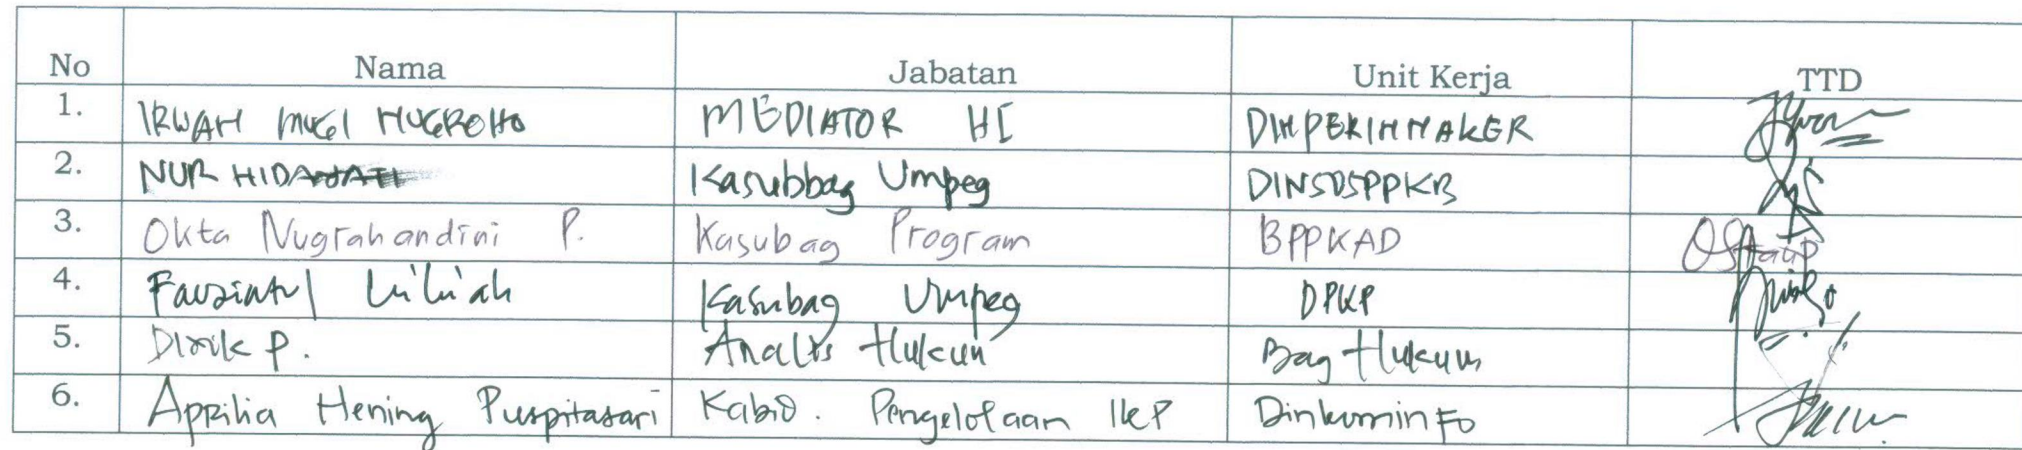 No Nama Jabatan Unit Kerja TTD
1. IRWAN MUGI NUGROHO MEDIATOR HI DINPERINNAKER
2. NUR HIDAYATI Kasubbag Umpeg DINSOSPPKB
3. Okta Nugrahandini P. Kasubag Program BPPKAD
4. Fauziatul Kasubag Umpeg DPKP
5. P. Analis Hukum Bag Hukum
6. Aprilia Hening Puspitasari Kabid. Pengelolaan IKP Dinkominfo